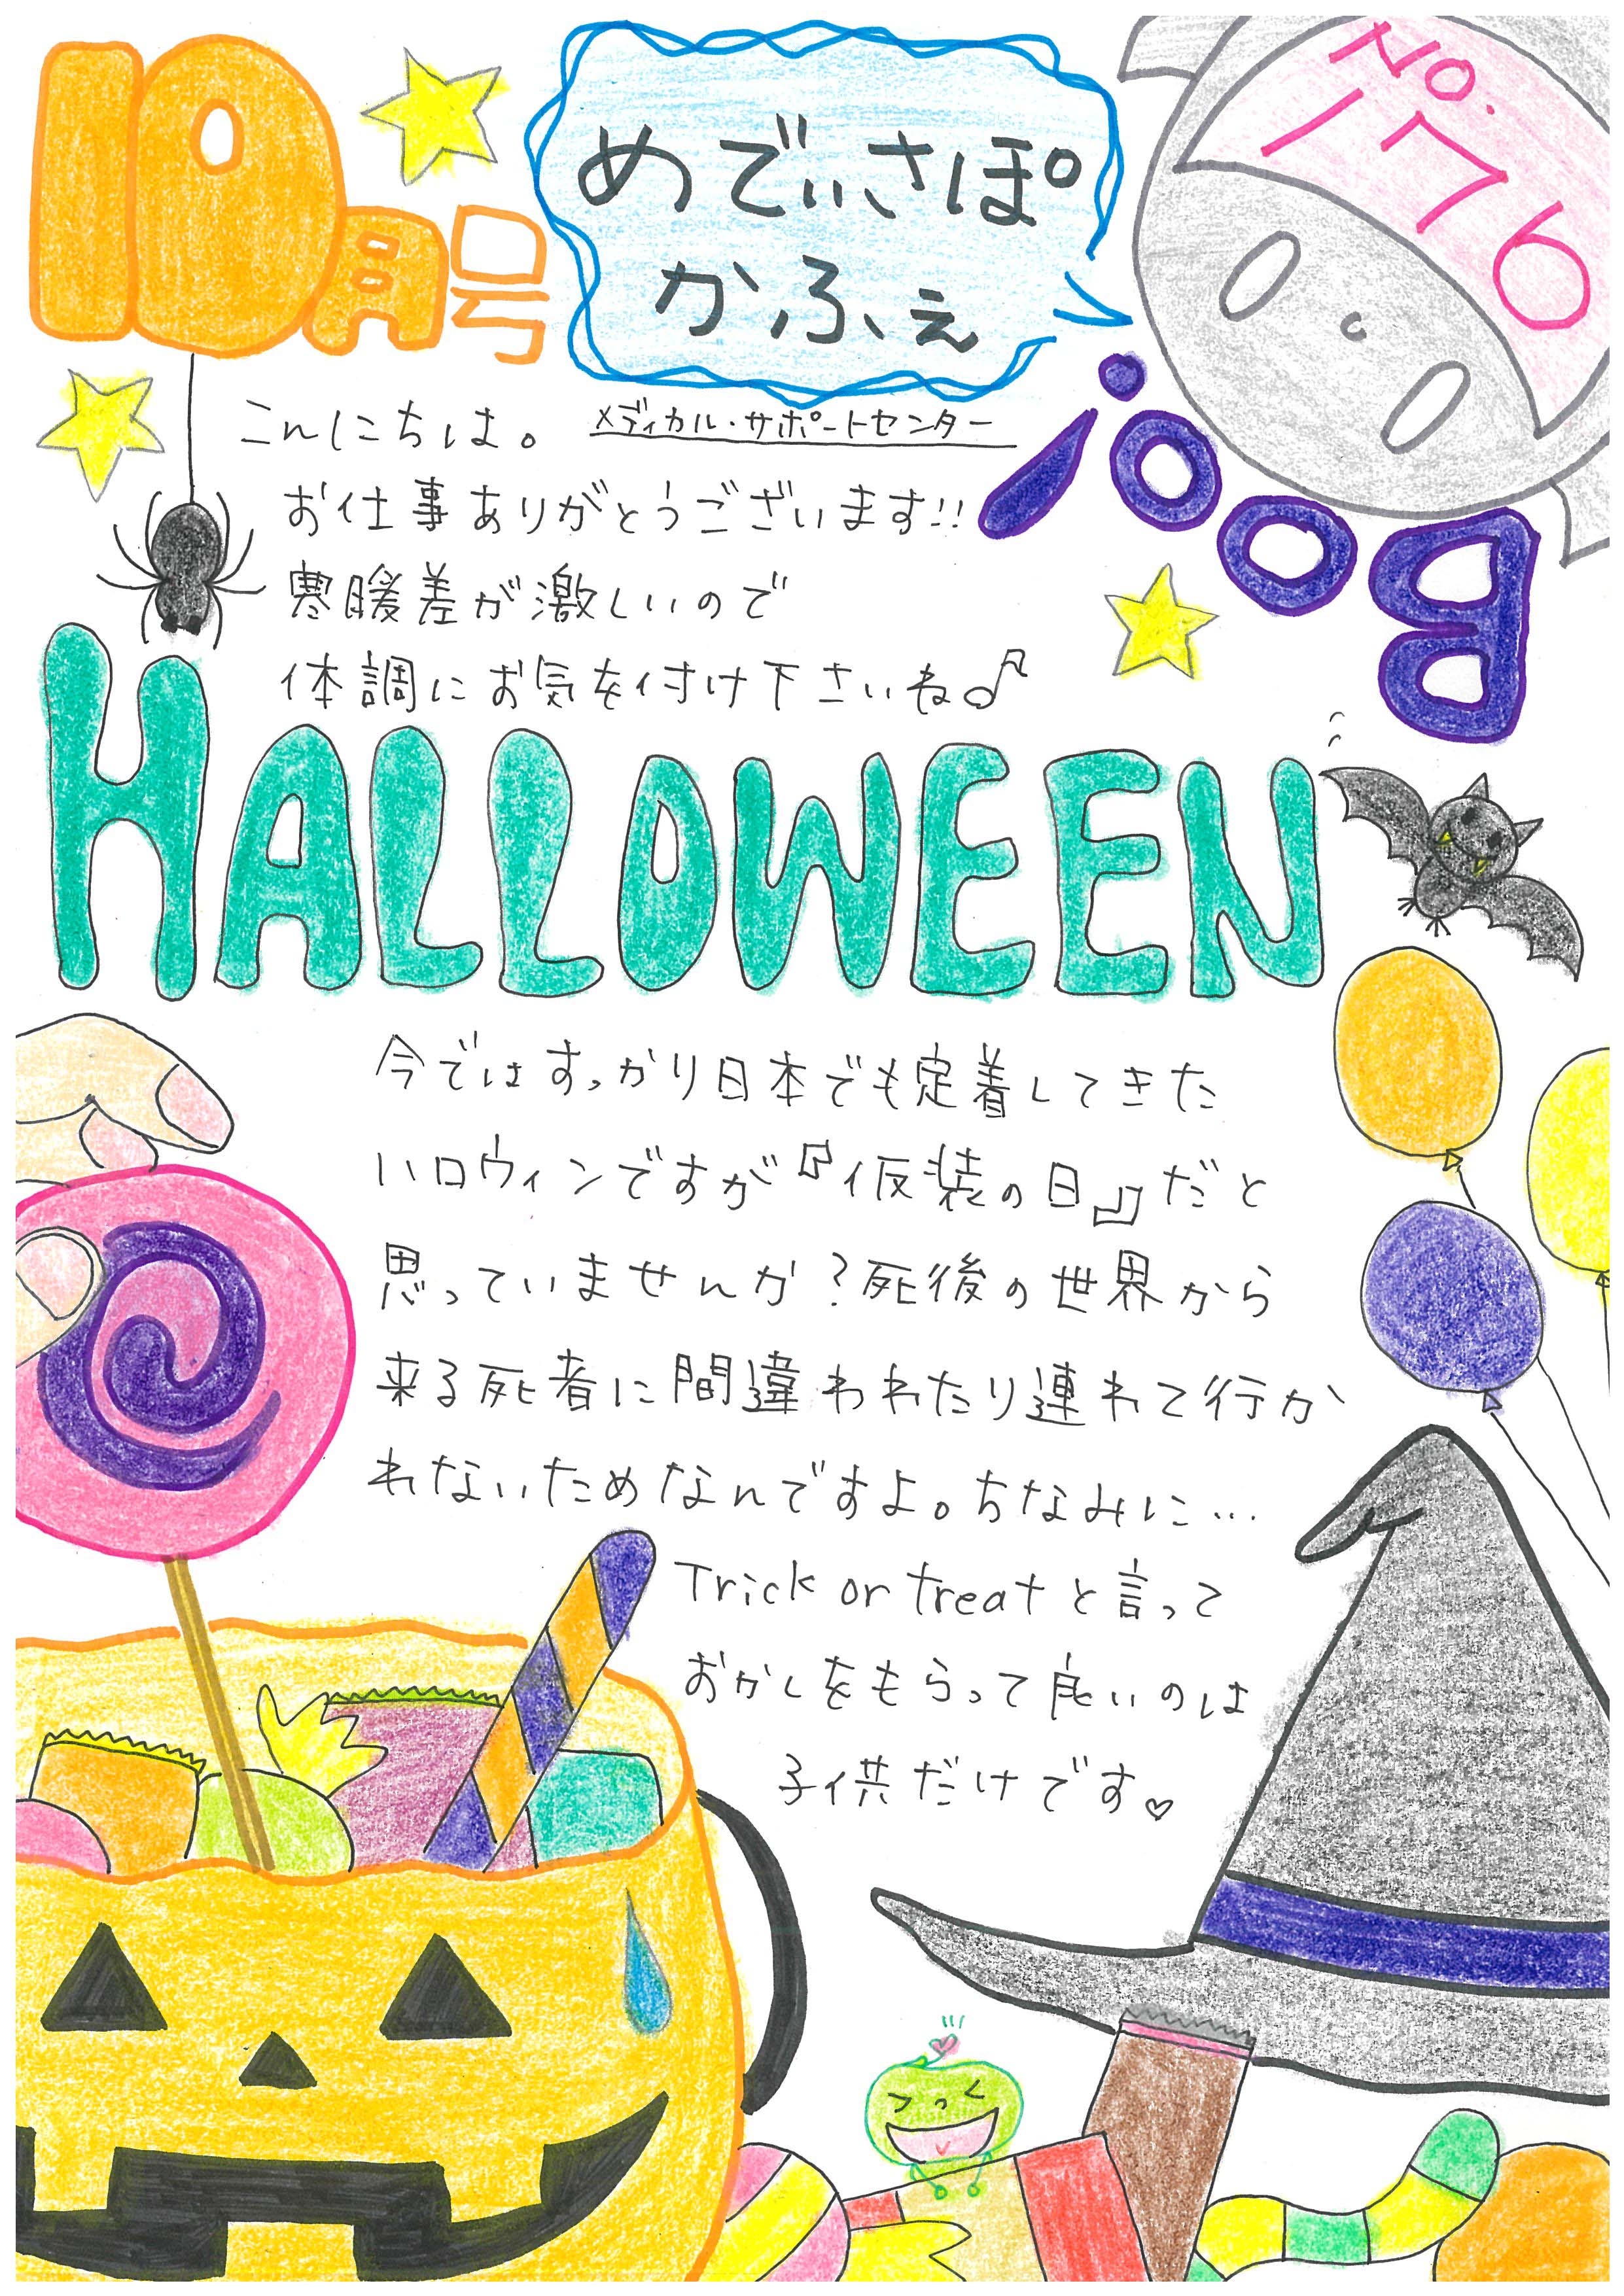 10月号
めでぃさぽ
かふぇ
No.
176
Boo!
こんにちは。 メディカル・サポートセンター
お仕事ありがとうございます!!
寒暖差が激しいので
体調にお気を付け下さいね♪
HALLOWEEN
今ではすっかり日本でも定着してきた
ハロウィンですが『仮装の日』だと
思っていませんか?死後の世界から
来る死者に間違われたり連れて行か
れないためなんですよ。ちなみに…
Trick or treatと言って
おかしをもらって良いのは
子供だけです♡